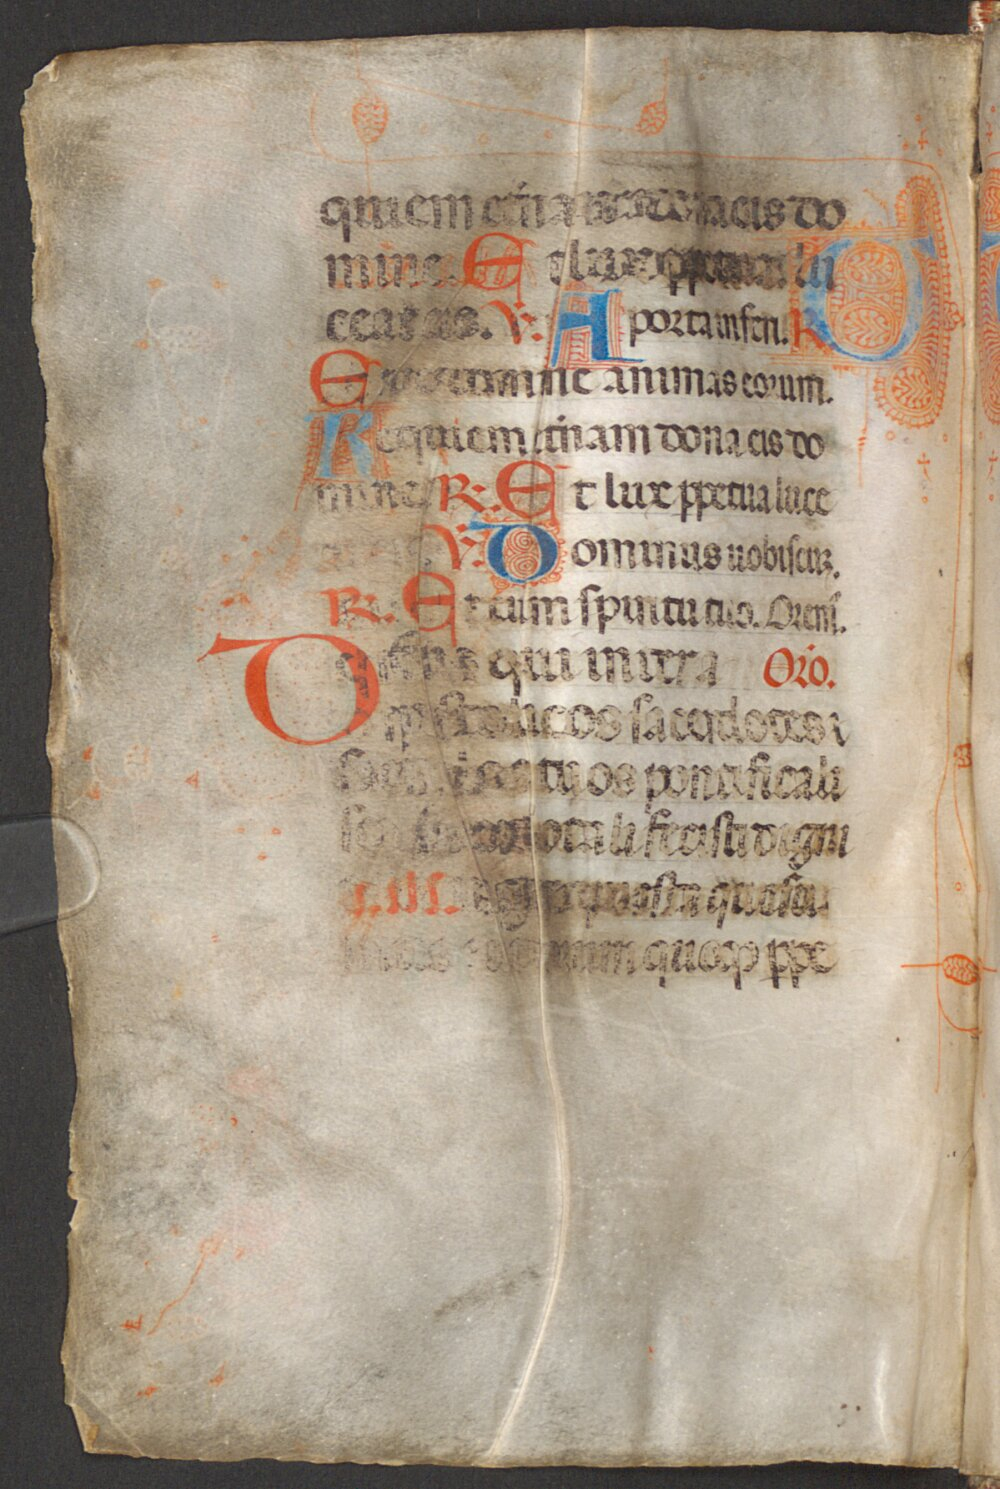 quiem etnam dona eis do
mine. Et lux ppetua lu
ceat eis. V. A porta inferi. R.
Erue domine animas eorum.
Requiem etnam dona eis do
mine. R. Et lux ppetua luce
V. Dominus uobiscuz.
R. Et cum spiritu tuo. Orem.
Deus qui intra Oro.
apostolicos sacerdotes
famulos tuos pontificali
seu sacerdotali fecisti digni
quesu
mus eorum quoqp ppe